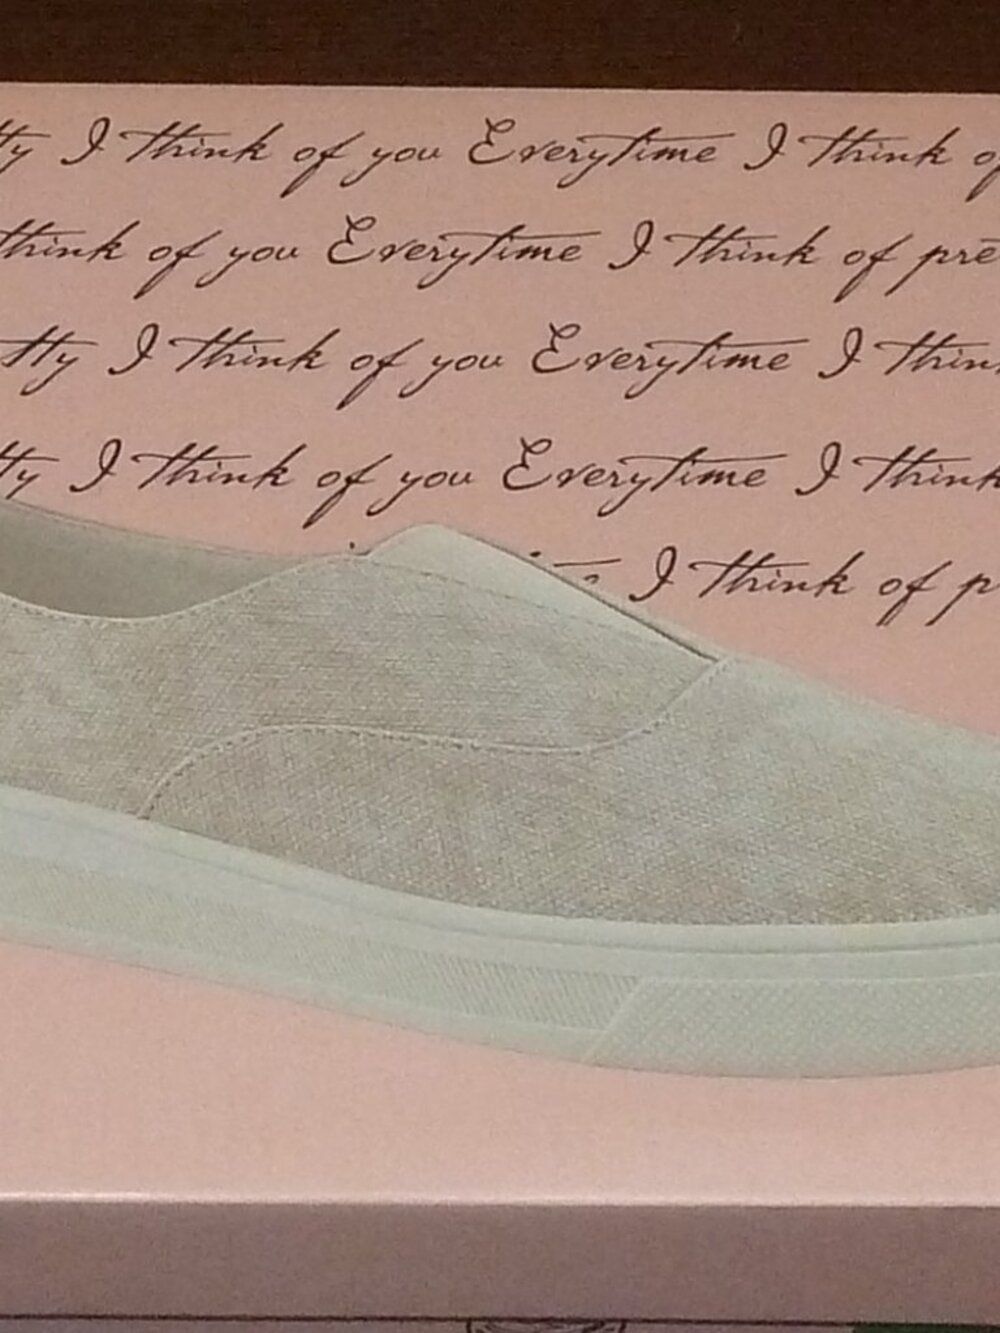 tty I think of you Everytime I think of
think of you Everytime I think of pre
tty I think of you Everytime I think
tty I think of you Everytime I think
I think of p